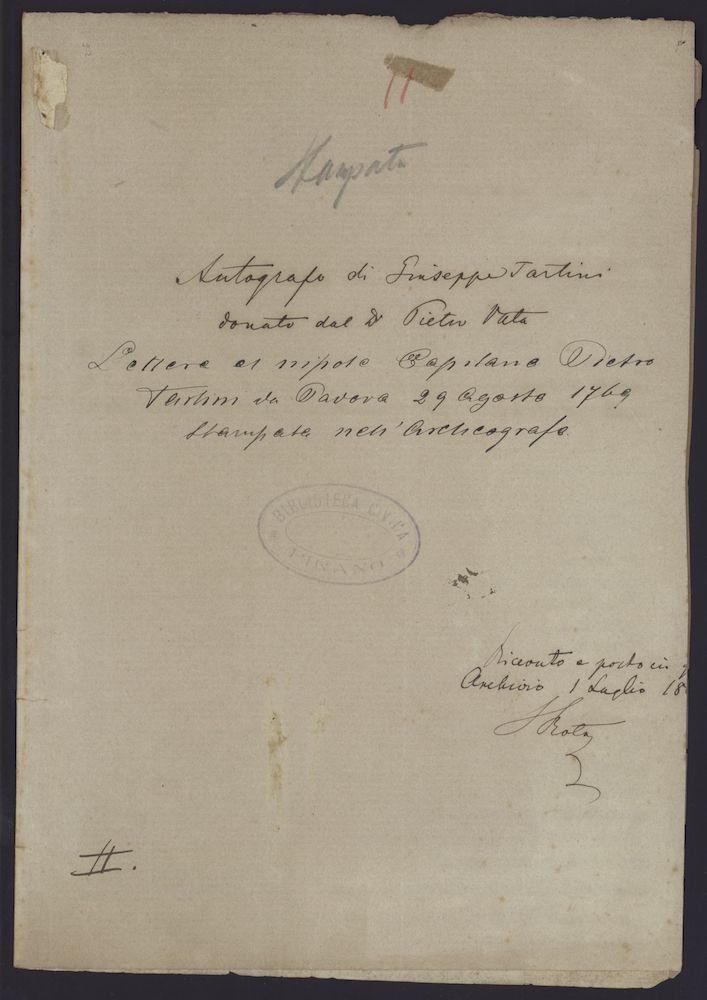 11
Stampata
Autografo di Giuseppe Tartini
donato dal Dr Pietro
Lettera al nipote Capitano Pietro
Tartini da Padova 29 Agosto 1769
Stampata nell'Archeografo.
BIBLIOTECA CIVICA
PIRANO
Ricevuto e posto in
Archivio 1 Luglio 18
II.